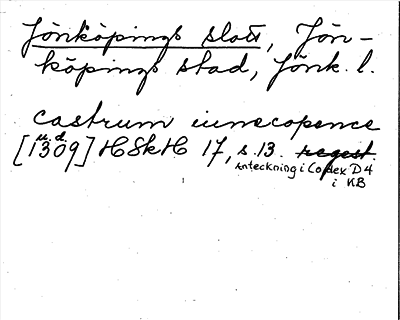 Jönköpings slott, Jön-
köpings stad, Jönk. l.
castrum iunecopence
u.d.
[1309] HSkH 17, s. 13. regest.
anteckning i Codex D 4
i KB